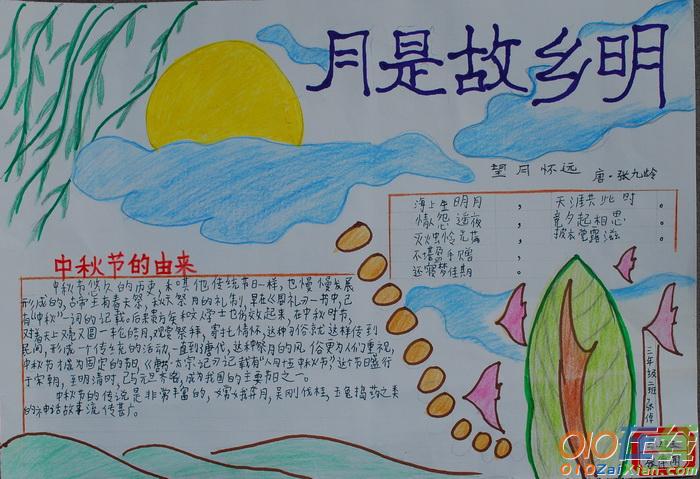 月是故乡明
望月怀远
唐·张九龄
海上生明月，天涯共此时。
情怨遥夜，竟夕起相思。
灭虫怜光满，披衣觉露滋。
不堪盈手赠
还寝梦佳期。
中秋节的由来
中秋节悠久的历史，和其他传统节日一样，也慢慢发展
形成的，古帝王有春天祭，秋天祭月的礼制，早在《周礼》一书中，已
有“中秋”一词的记载。后来贵族和文人学士也仿效起来，在中秋时节，
对着天上又亮又圆一轮皓月，观赏祭拜，寄托情怀，这种习俗就这样传到
民间，形成一个传统的活动，一直到唐代，这种祭月的风俗更为人们重视，
中秋节才成为固定的节日，《唐书·太宗记》记载有“八月十五中秋节”这个节日盛行
于宋朝，至明清时，已与元旦齐名，成为我国的主要节日之一。
中秋节的传说是非常丰富的，嫦娥奔月，吴刚伐桂，玉兔捣药之类
的神话故事流传甚广。
三年级二班
010在线
010ZaiXian.com